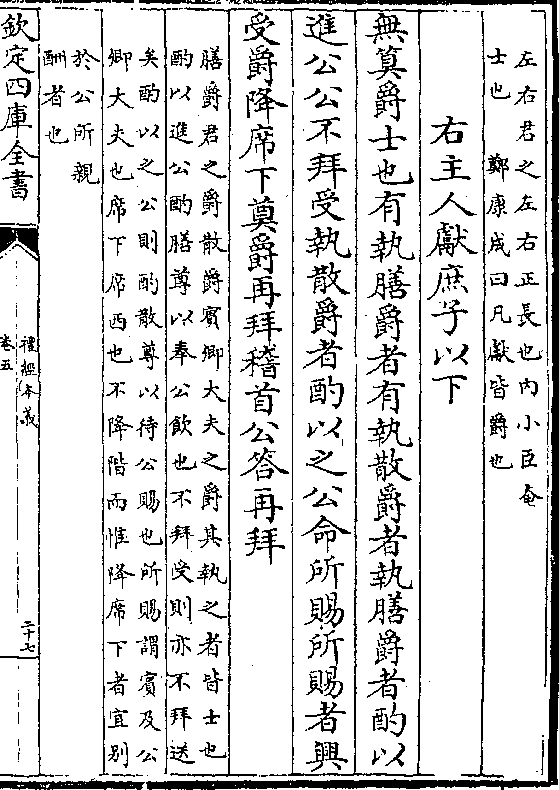 左右君之左右正長也内小臣奄
士也　鄭康成曰凡獻皆爵也
右主人獻庶子以下
無筭爵士也有執膳爵者有執散爵者執膳爵者酌以
進公公不拜受執散爵者酌以之公命所賜所賜者興
受爵降席下奠爵再拜稽首公答再拜
膳爵君之爵散爵賓卿大夫之爵其執之者皆士也
酌以進公酌膳尊以奉公飲也不拜受則亦不拜送
矣酌以之公則酌散尊以待公賜也所賜謂賓及公
卿大夫也席下席西也不降階而惟降席下者宜别
於公所親
酬者也
欽定四庫全書
禮經本義
卷五
二十七